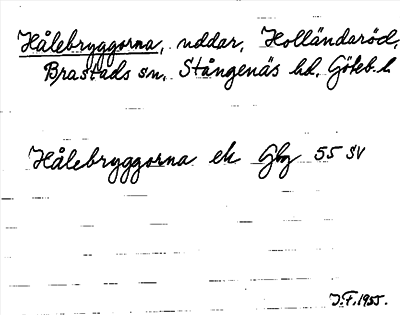 Hålebryggorna, uddar, Holländaröd,
Brastads sn, Stångenäs hd, Göteb. l.
Hålebryggorna ek Gbg 55 SV
J.F. 1955.